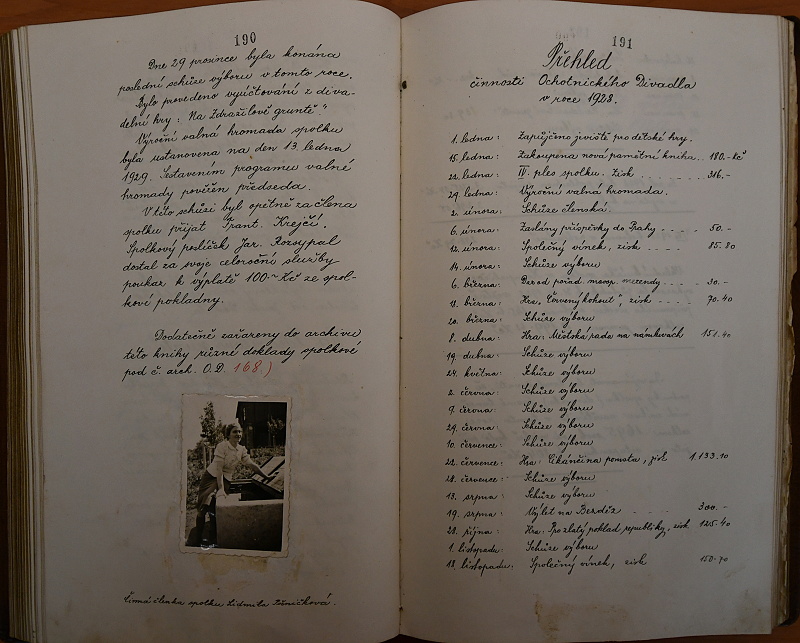 190
Dne 29 prosince byla konána
poslední schůze výboru v tomto roce.
Bylo provedeno vyúčtování z diva-
delní hry: Na Zdražilově gruntě"
Výroční valná hromada spolku
byla ustanovena na den 13. ledna
1929. Sestavením programu valné
hromady pověřen předseda.
V této schůzi byl opětně za člena
spolku přijat Frant. Krejčí.
Spolkový poslíček Jar. Rozsypal
dostal za svoje celoroční služby
poukaz k výplatě 100.- Kč ze spol-
kové pokladny.
Dodatečně zařazeny do archivu
této knihy různé doklady spolkové
pod č. arch. O.D. 168.)
Činná členka spolku Lidmila
191
Přehled
činnosti Ochotnického Divadla
v roce 1928.
1. ledna: Zapůjčeno jeviště pro dětské hry.
15. ledna: Zakoupena nová památní kniha.. 180.- Kč
21. ledna: IV. ples spolku. zisk . . . . . 316.-
29. ledna: Výroční valná hromada.
2. února: Schůze členská.
6. února: Zaslány příspěvky do Prahy . . . . 50.-
12. února: Společný vínek, zisk . . . . 85.80
14. února: Schůze výboru
6. března: pořad. masop. merendy . . . . 30.-
18. března: Hra, "Červený kohout", zisk . . . . 70.40
20. března: Schůze výboru
8. dubna: Hra: Městská rada na námluvách 151.40
19. dubna: Schůze výboru
24. května: Schůze výboru
2. června: Schůze výboru
9. června: Schůze výboru
29. června: Schůze výboru
10. července: Schůze výboru
22. července: Hra: Cikánčina pomsta, zisk 1.133.10
28. července: Schůze výboru
13. srpna: Schůze výboru
19. srpna: Výlet na Bezděz . . . . . 300.-
28. října: Hra: Pro zlatý poklad republiky, zisk 125.40
1. listopadu: Schůze výboru
18. listopadu: Společný vínek, zisk 150.70